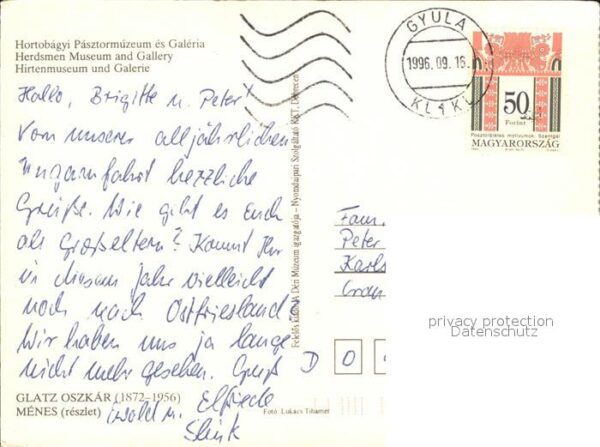 Hortobágyi Pásztormúzeum és Galéria
Herdsmen Museum and Gallery
Hirtenmuseum und Galerie
Hallo, Brigitte u. Peter!
Von unserer alljährlichen
Ungarnfahrt herzliche
Grüße. Wie geht es Euch
als Großeltern? Kommt Ihr
in diesem Jahr vielleicht
noch nach Ostfriesland?
Wir haben uns ja lange
nicht mehr gesehen. Gruß
u. Elfriede
GLATZ OSZKÁR (1872–1956)
MÉNES (részlet)
Fotó: Lukács Tihamér
Déri Múzeum igazgatója – Nyomdaipari Szolgáltató KKT. Debrecen
GYULA
1996.09.16.
50
Forint
MAGYARORSZÁG
Fam.
Peter
Karls
D 0
privacy protection
Datenschutz